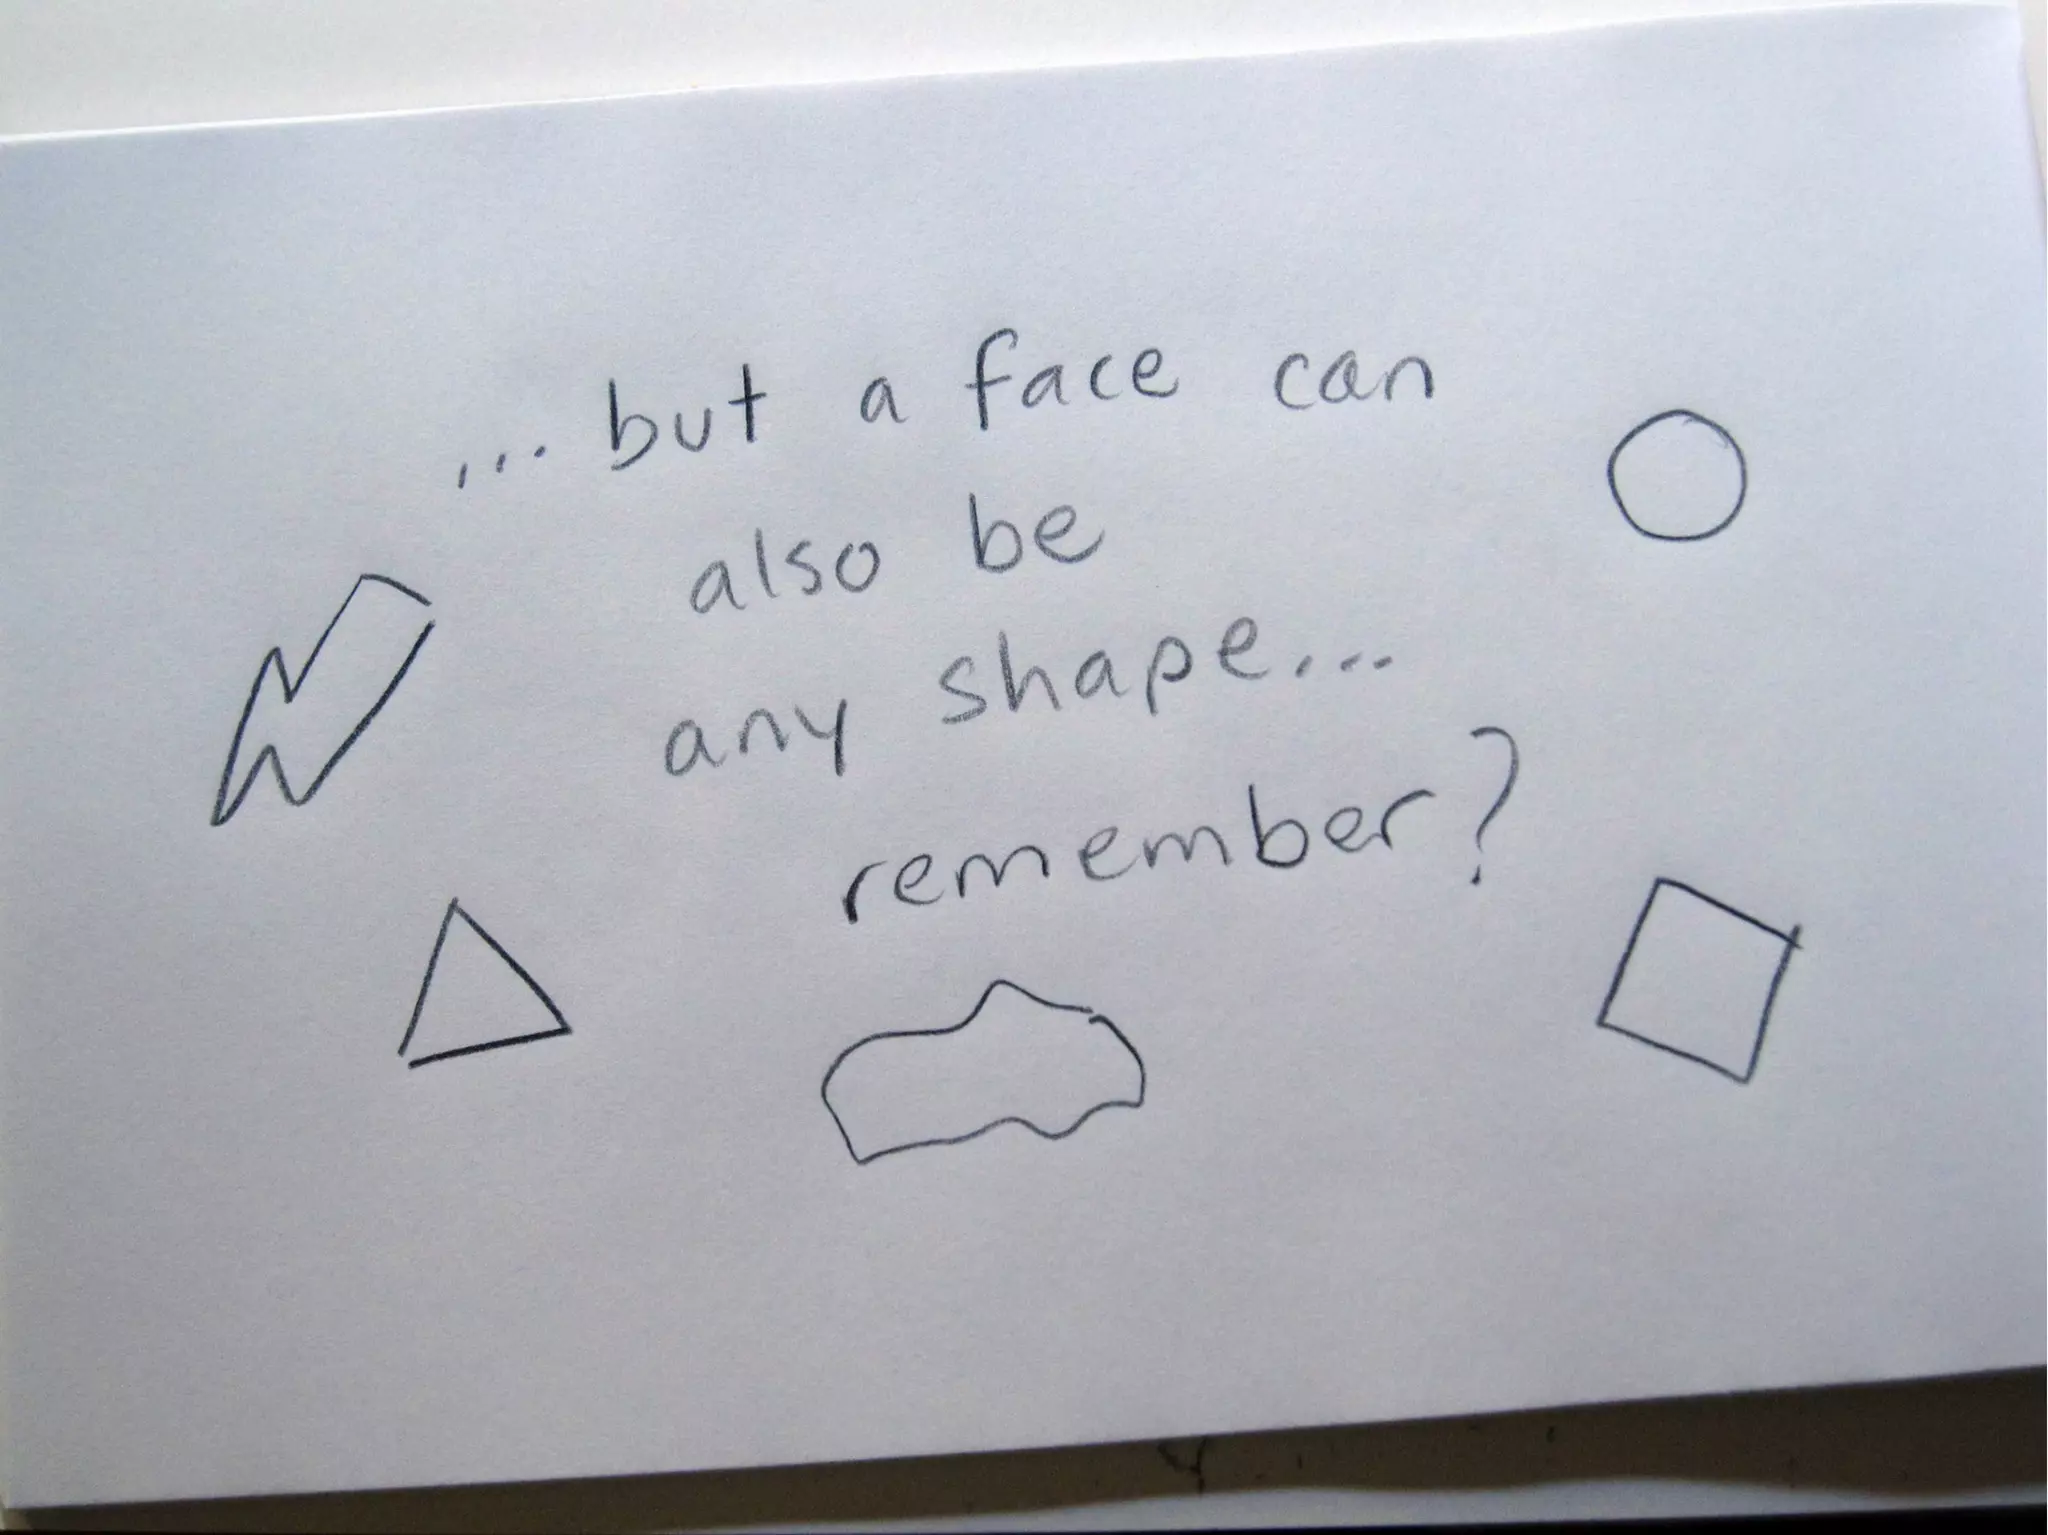 ...but a face can
also be
any shape...
remember?